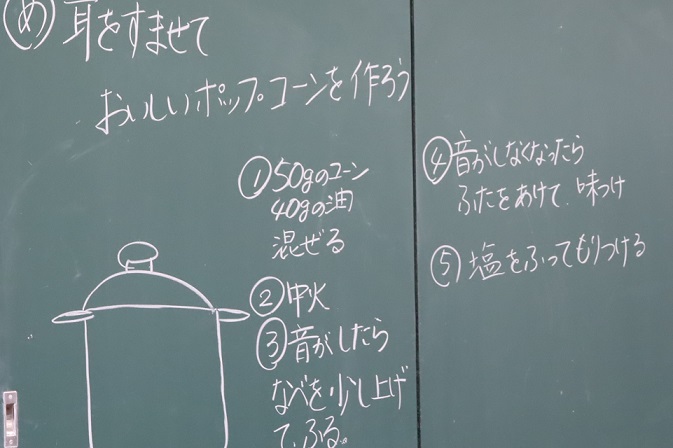 め 耳をすませて
おいしいポップコーンを作ろう
① 50gのコーン
40gの油
混ぜる
② 中火
③ 音がしたら
なべを少し上げ
て、ふる。
④ 音がしなくなったら
ふたをあけて、味つけ
⑤ 塩をふってもりつける